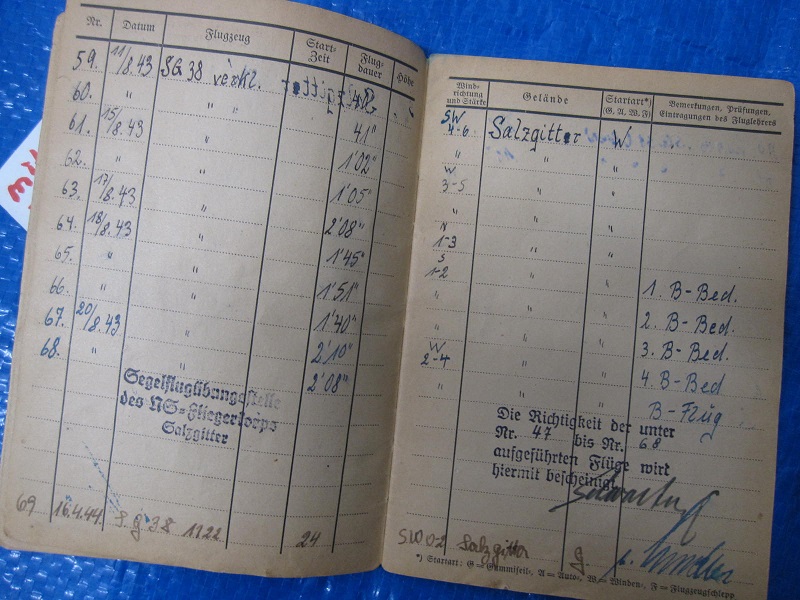 Nr. Datum Flugzeug Start-Zeit Flug-dauer Höhe
59. 11/8.43 SG 38 verkl.
60. " " 41"
61. 15/8.43 " 41"
62. " " 1'02"
63. 17/8.43 " 1'05"
64. 18/8.43 " 2'08"
65. " " 1'45"
66. " " 1'51"
67. 20/8.43 " 1'40"
68. " " 2'10"
2'08"
Segelflugübungsstelle
des NS-Fliegerkorps
Salzgitter
69 16.4.44. S.G 38 1122 24
Wind-richtung und Stärke Gelände Startart*) (G. A. W. F.) Bemerkungen, Prüfungen, Eintragungen des Fluglehrers
SW 4-6 Salzgitter W
" " "
W 3-5 " "
" " "
N 1-3 " "
S 1-2 " "
" " " 1. B-Bed.
" " " 2. B-Bed.
W 2-4 " " 3. B-Bed.
" " " 4. B-Bed
B-Flug
Die Richtigkeit der unter
Nr. 47 bis Nr. 68
aufgeführten Flüge wird
hiermit bescheinigt
SW 02 Salzgitter G.
*) Startart: G = Gummiseil-, A = Auto-, W. = Winden-, F = Flugzeugschlepp